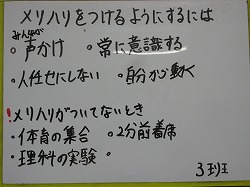 メリハリをつけるようにするには
みんなが
・声かけ ・常に意識する
・人任せにしない ・自分から動く
!メリハリがついてないとき
・体育の集合 ・2分前着席
・理科の実験 ・
3班